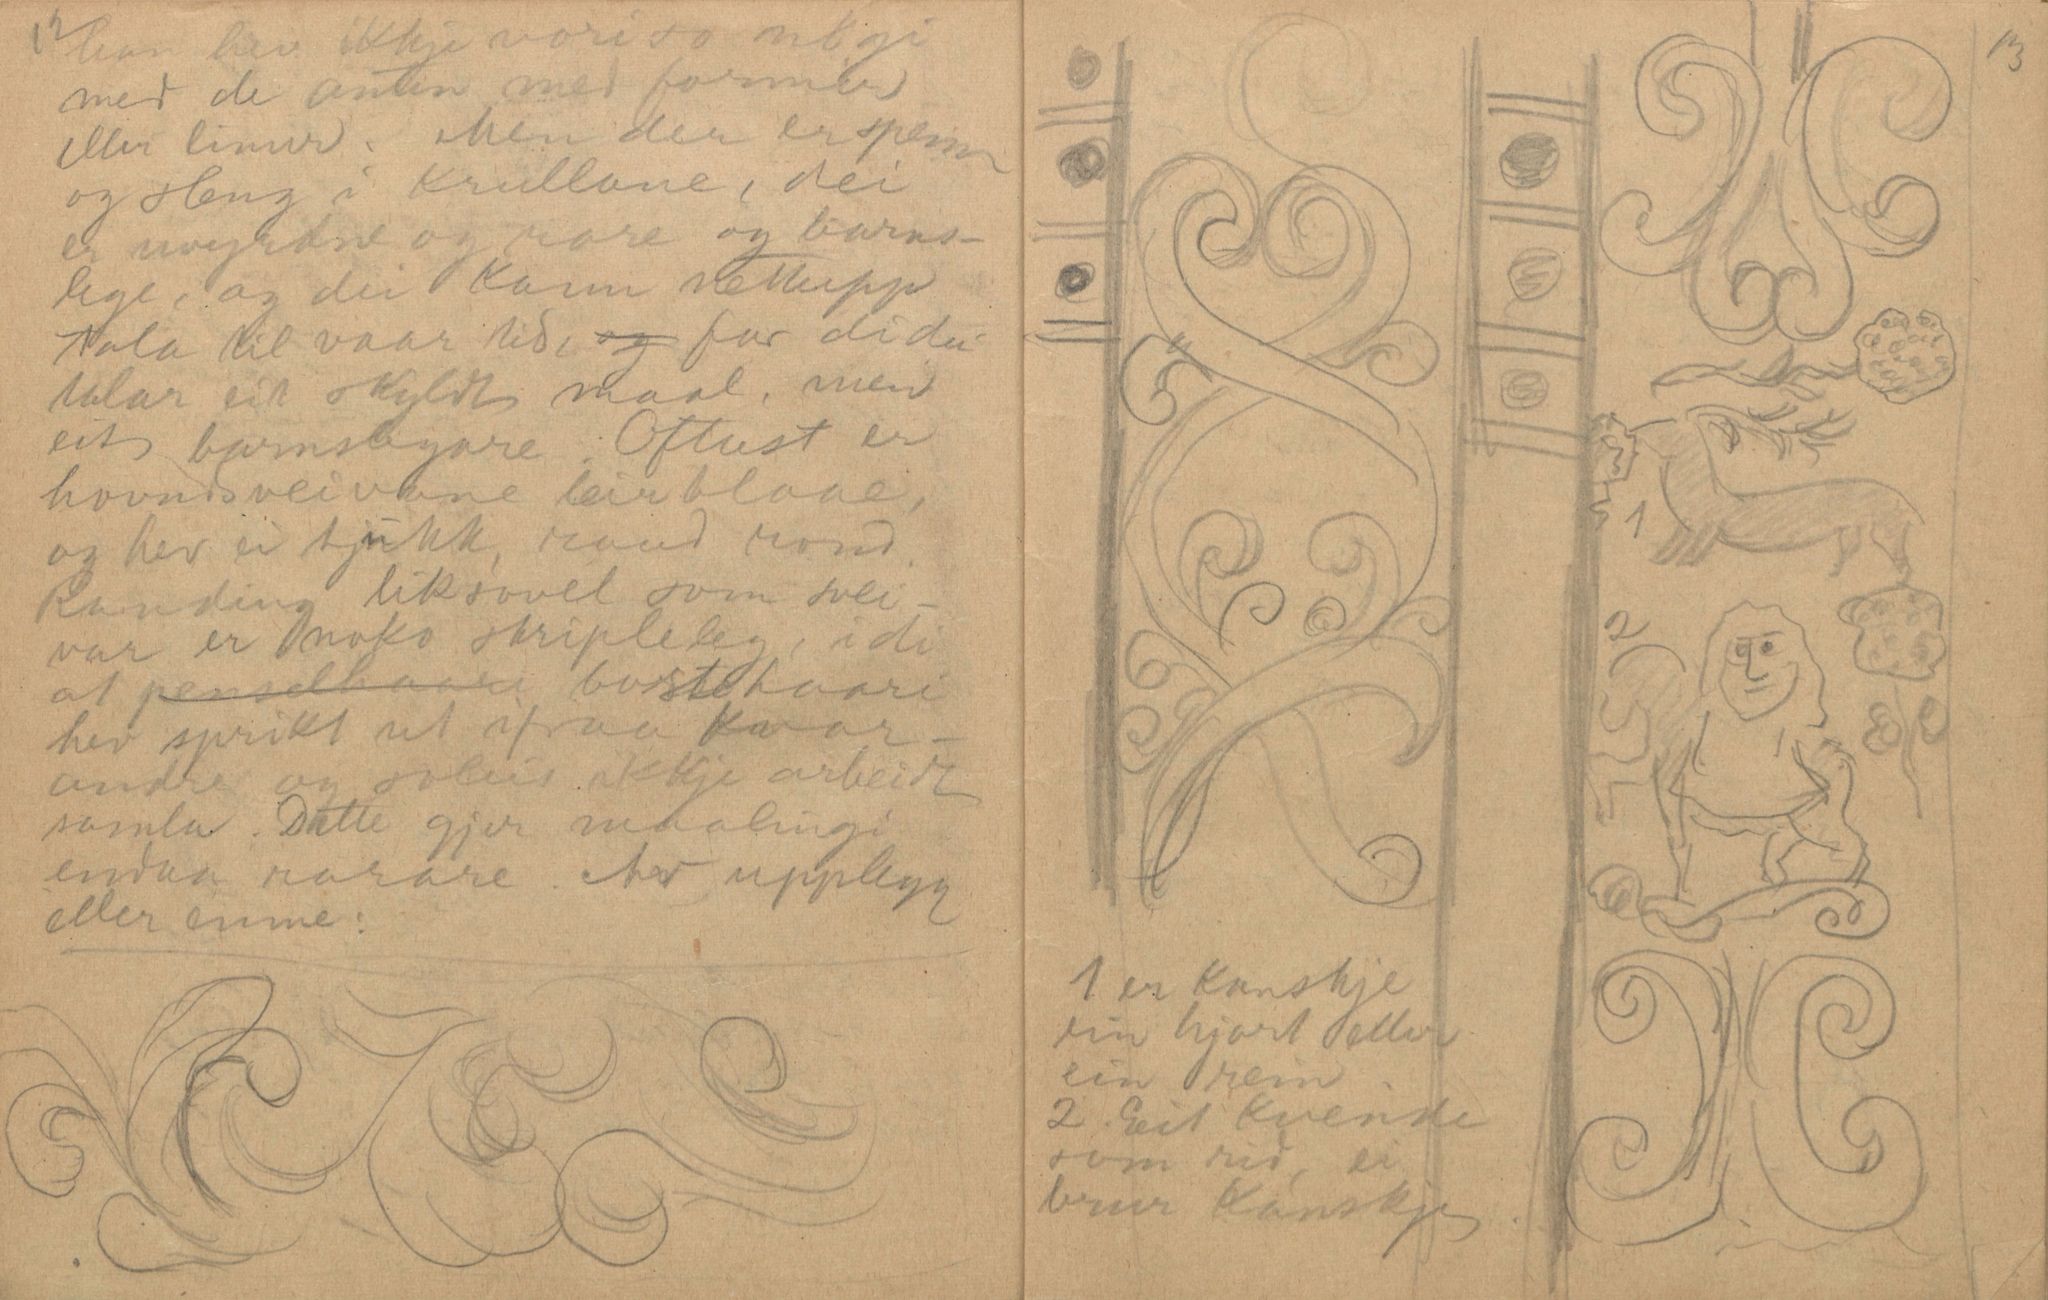 12
han hev ikkje vori so nögi
med de anten med formier
eller linur. Men der er spenn
og sleng i Krullane, dei
er uvyrdne og rare og barns-
lege, og dei kann nettupp
tala til vaar tid, og for di dei
talar eit skyldt maal, men
eit barnslegare. Oftast er
hovudsveivane leirblaae,
og hev ei tjukk, raud rond.
Randing liksovel som svei-
var er noko stripleleg, i di
at penselhaari bustehaari
hev sprikt ut ifraa kvar-
andre og soleis ikkje arbeidt
samla. Dette gjer maalingi
endaa rarare. Her upplegg
eller emne:
13
1
2
1 er Kanskje
ein hjort eller
ein rein.
2. Eit Kvende
som rid, ei
brur Kanskje.